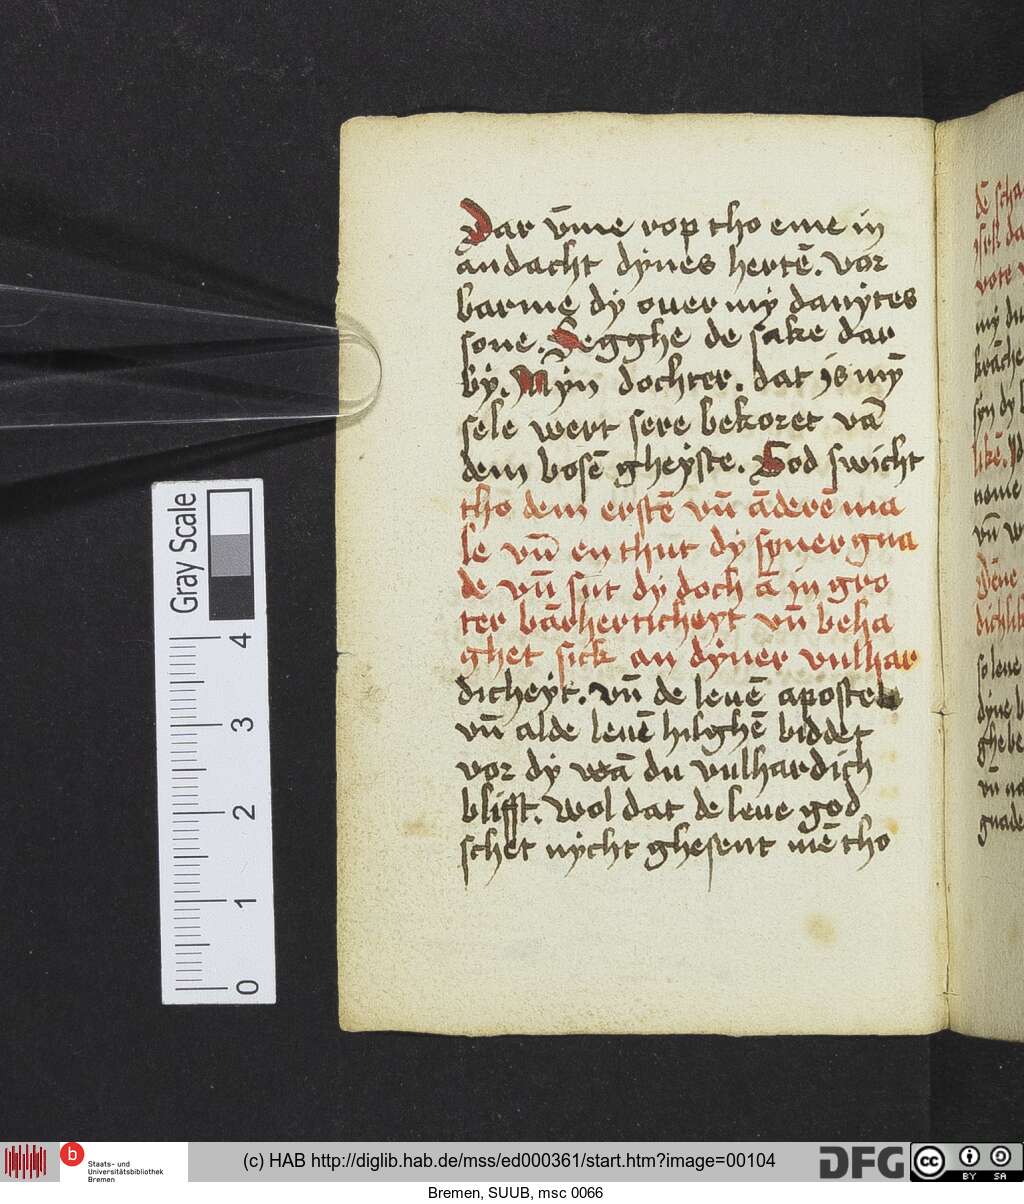 Dar v̄me rop tho eme in
andacht dynes hertē. vor
barme dy ouer my dauytes
sone. Segghe de sake dar
by. Myn dochter. dat is my̅
sele wert sere bekoret vā
dem bosē gheyste. God swicht
tho dem erstē vn̄ āderē ma
le vn̄ en thut dy syner gna
de vn̄ sut dy doch ā in gro
ter bārherticheyt vn̄ beha
ghet sick an dyner vulhar
dicheyt. vn̄ de leuē apostele
vn̄ alde leuē hilghē biddet
vor dy wā du vulhardich
blifft. wol dat de leue god
schet nycht ghesent mē tho
Gray Scale
4
3
2
1
0
dē scha
vote
my du
syn dy
likē.
nome
vn̄ w
so leue
dyne b
ghebe
gnade
b
Staats- und
Universitätsbibliothek
Bremen
(c) HAB http://diglib.hab.de/mss/ed000361/start.htm?image=00104
DFG
cc
BY SA
Bremen, SUUB, msc 0066